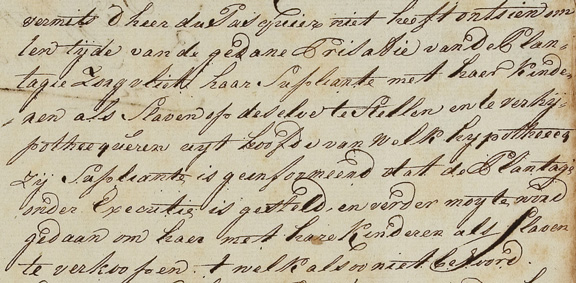 vermits d heer du Pasquier niet heeft ontsien om
ten tijde van de gedane Prisatie van de Plan-
tagie Zorgvliet haar Supliante met haer kinde-
ren als Slaven op deselve te Stellen en te verhij-
potheequeren uyt hoofde van welk hypotheecq
Zij Supliante is geinformeerd dat de Plantage
onder Executie is gesteld, en verder moyte word
gedaan om haer met hare kinderen als Slaven
te verkoopen. t welk alsoo niet behoord.